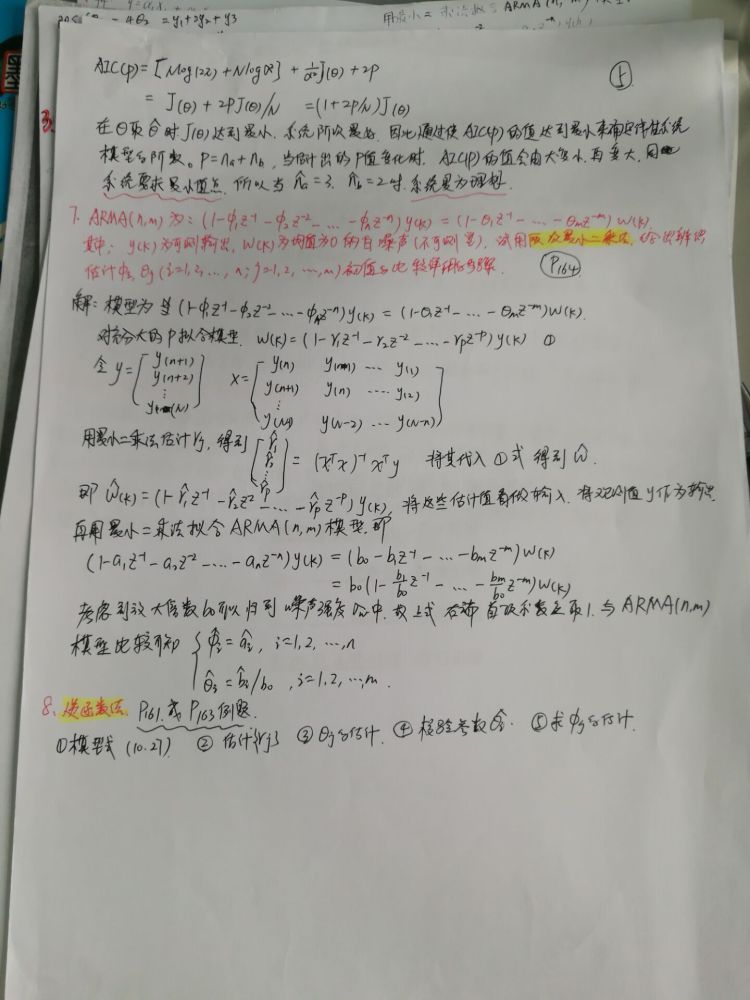 -4θ₂ = y₁+2y₂+y₃
ARMA(n, m)
AIC(p) = [Nlog(2π) + Nlogσ²] + 1/σ² J(θ) + 2p
5
= J(θ) + 2PJ(θ)/N = (1+2P/N)J(θ)
在θ取θ̂时J(θ)达到最小. 系统阶次最好, 因此通过使AIC(p)的值达到最小来确定线性系统
模型的阶数。P=na+nb, 当估计出的P值变化时, AIC(p)的值会由大变小, 再变大, 用
系统要求最小值点. 所以当 n̂a=3, n̂b=2时, 系统最为理想.
7. ARMA(n,m)为: (1-φ₁z⁻¹-φ₂z⁻²-…-φₙz⁻ⁿ)y(k) = (1-θ₁z⁻¹-…-θₘz⁻ᵐ)w(k).
其中: y(k)为可测输出, w(k)为均值为0的白噪声(不可测量), 试用两次最小二乘法, 给出辨识
估计φᵢ, θⱼ(i=1,2,…,n; j=1,2,…,m)初值的比较详细步骤.
P164
解: 模型为 (1-φ₁z⁻¹-φ₂z⁻²-…-φₙz⁻ⁿ)y(k) = (1-θ₁z⁻¹-…-θₘz⁻ᵐ)w(k).
对充分大的P拟合模型. w(k) = (1-γ₁z⁻¹-γ₂z⁻²-…-γₚz⁻ᵖ)y(k) ①
令 y = [y(n+1) y(n+2) ⋮ y(N)] x = [y(n) y(n-1) … y(1)
y(n+1) y(n) … y(2)
⋮
y(N-1) y(N-2) … y(N-n)]
用最小二乘法估计γj, 得到 [γ̂₁ γ̂₂ ⋮ γ̂p] = (xᵀx)⁻¹xᵀy 将其代入①式得到ŵ.
即 ŵ(k) = (1-γ̂₁z⁻¹-γ̂₂z⁻²-…-γ̂ₚz⁻ᵖ)y(k), 将这些估计值看做输入, 将观测值y作为输出
再用最小二乘法拟合ARMA(n,m)模型, 即
(1-a₁z⁻¹-a₂z⁻²-…-aₙz⁻ⁿ)y(k) = (b₀-b₁z⁻¹-…-bₘz⁻ᵐ)w(k)
= b₀(1-b₁/b₀ z⁻¹-…-bₘ/b₀ z⁻ᵐ)w(k)
考虑到放大倍数b₀可以归到噪声强度中, 故上式右端首项系数应取1. 与ARMA(n,m)
模型比较可知 { φ̂ᵢ = âᵢ, i=1,2,…,n
θ̂ᵢ = b̂ᵢ/b₀, i=1,2,…,m.
8. 逆函数法. P161或P163例题.
①模型式(10.27) ②估计γj ③θj的估计. ④检验参数θ̂. ⑤求φj的估计.